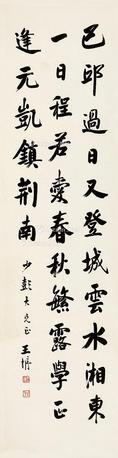 己邱過日又登城雲水湘東
一日程若愛春秋繁露學正
逢元凱鎮荆南
少彭大兄正 王博